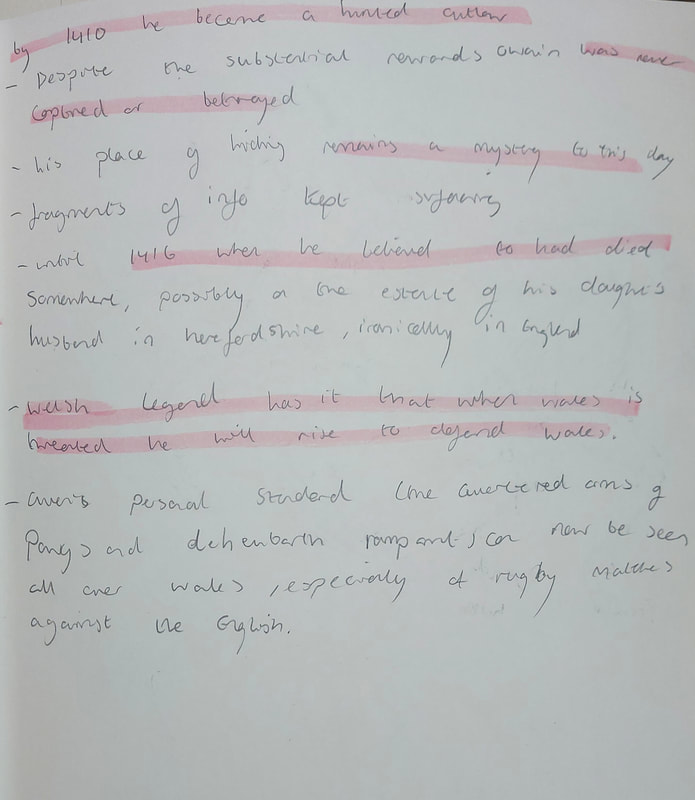 by 1410 he became a hunted outlaw
- Despite the substantial rewards owain was never
captured or betrayed
- his place of hiding remains a mystery to this day
- fragments of info kept surfacing
- until 1416 when he believed to had died
Somewhere, possibly on the estate of his daughters
husband in herefordshire, ironically in England
- welsh legend has it that when wales is
threatened he will rise to defend wales.
- owens personal standard (the quartered arms of
Powys and deheubarth rampant) can now be seen
all over wales, especially at rugby matches
against the English.